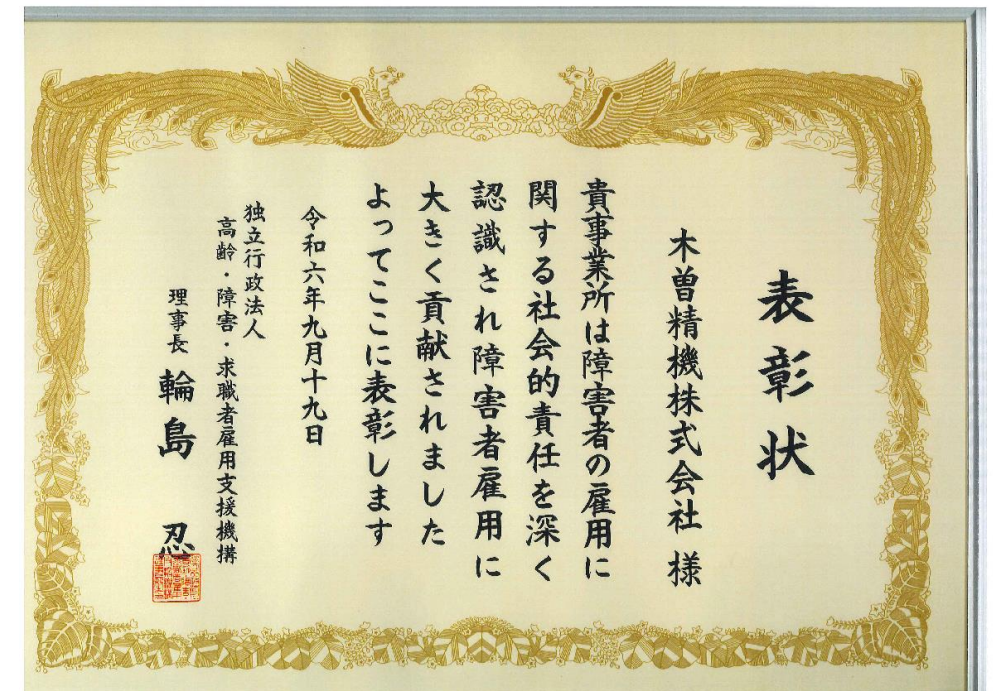 表彰状
木曽精機株式会社 様
貴事業所は障害者の雇用に
関する社会的責任を深く
認識され障害者雇用に
大きく貢献されました
よってここに表彰します
令和六年九月十九日
独立行政法人
高齢・障害・求職者雇用支援機構
理事長 輪島 忍